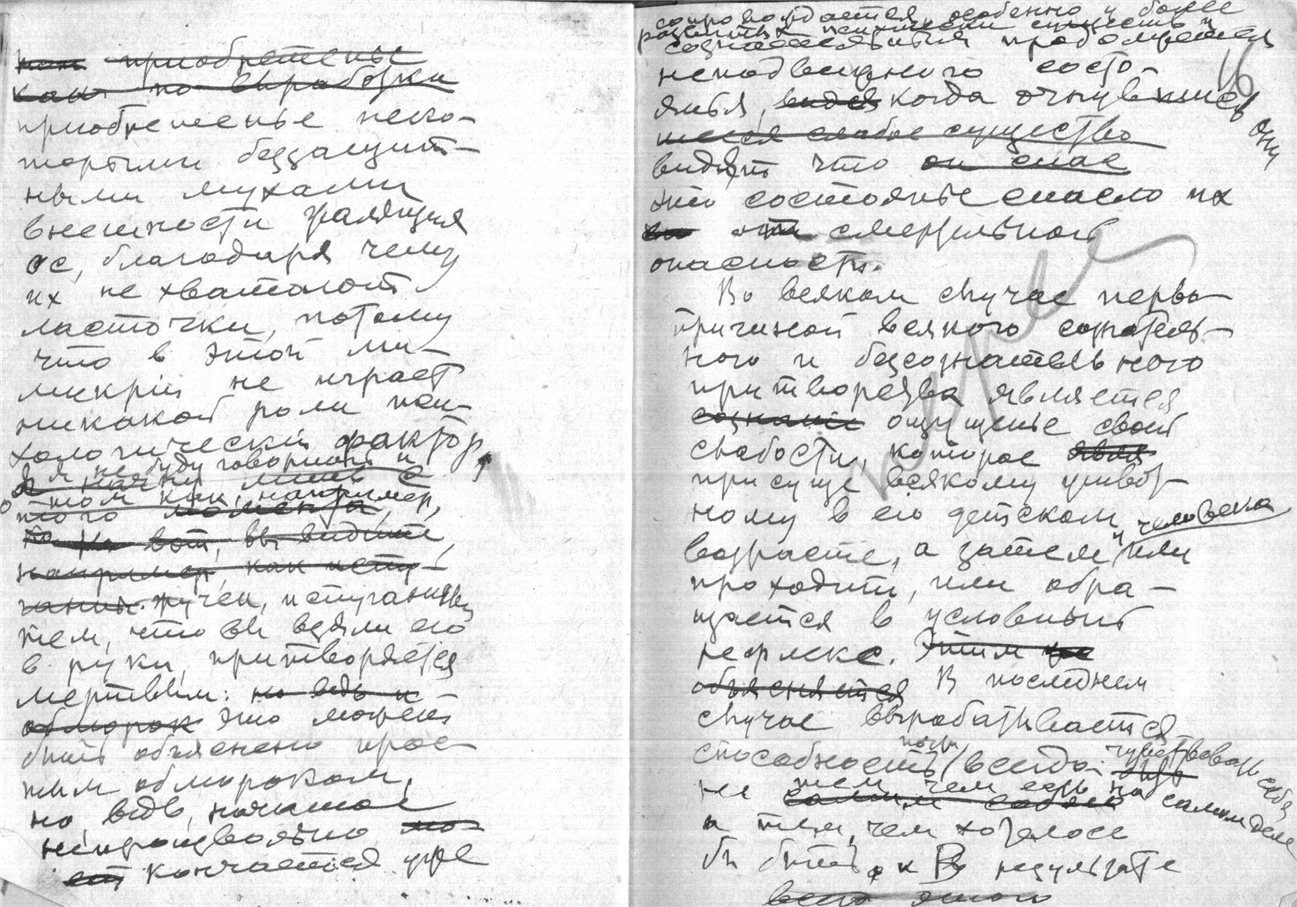 приобретенье
как по выработки
приобретенье неко-
торыми беззащит-
ными мухами
внешности жалящих
ос, благодаря чему
их не хватают
ласточки, потому
что в этой ми-
микрии не играет
никакой роли пси-
хологический фактор,
я не буду говорить и
Я начну лишь с
о том как, например,
того момента,
вот, вы видите,
например, как испу-
ганный жучек, испуганный
тем, что вы взяли его
в руки, притворяется
мертвым: но ведь и
обморок это может
быть объяснено прос-
тым обмороком,
но ведь, начатое
непроизвольно
кончается уже
сопровождается особенно у более
развитых психически существ и
сознательным продолжением
неподвижного состо-
янья, видя когда очнувшись они
шееся слабое существо
видят что он спас
это состоянье спасло их
от смертельной
опасности.
Во всяком случае перво-
причиной всякого сознатель-
ного и безсознательного
притворства является
сознание ощущенье своей
слабости, которое
присуще всякому живот-
ному в его детском человека
возрасте, а затем и или
проходит, или обра-
щается в условный
рефлекс. Этим же
объясняется В последнем
случае вырабатывается
способность почти всегда чувствовать себя
не тем чем есть на самом деле
самим собою
а тем, чем хотелось
бы быть, и В результате
всего этого
16